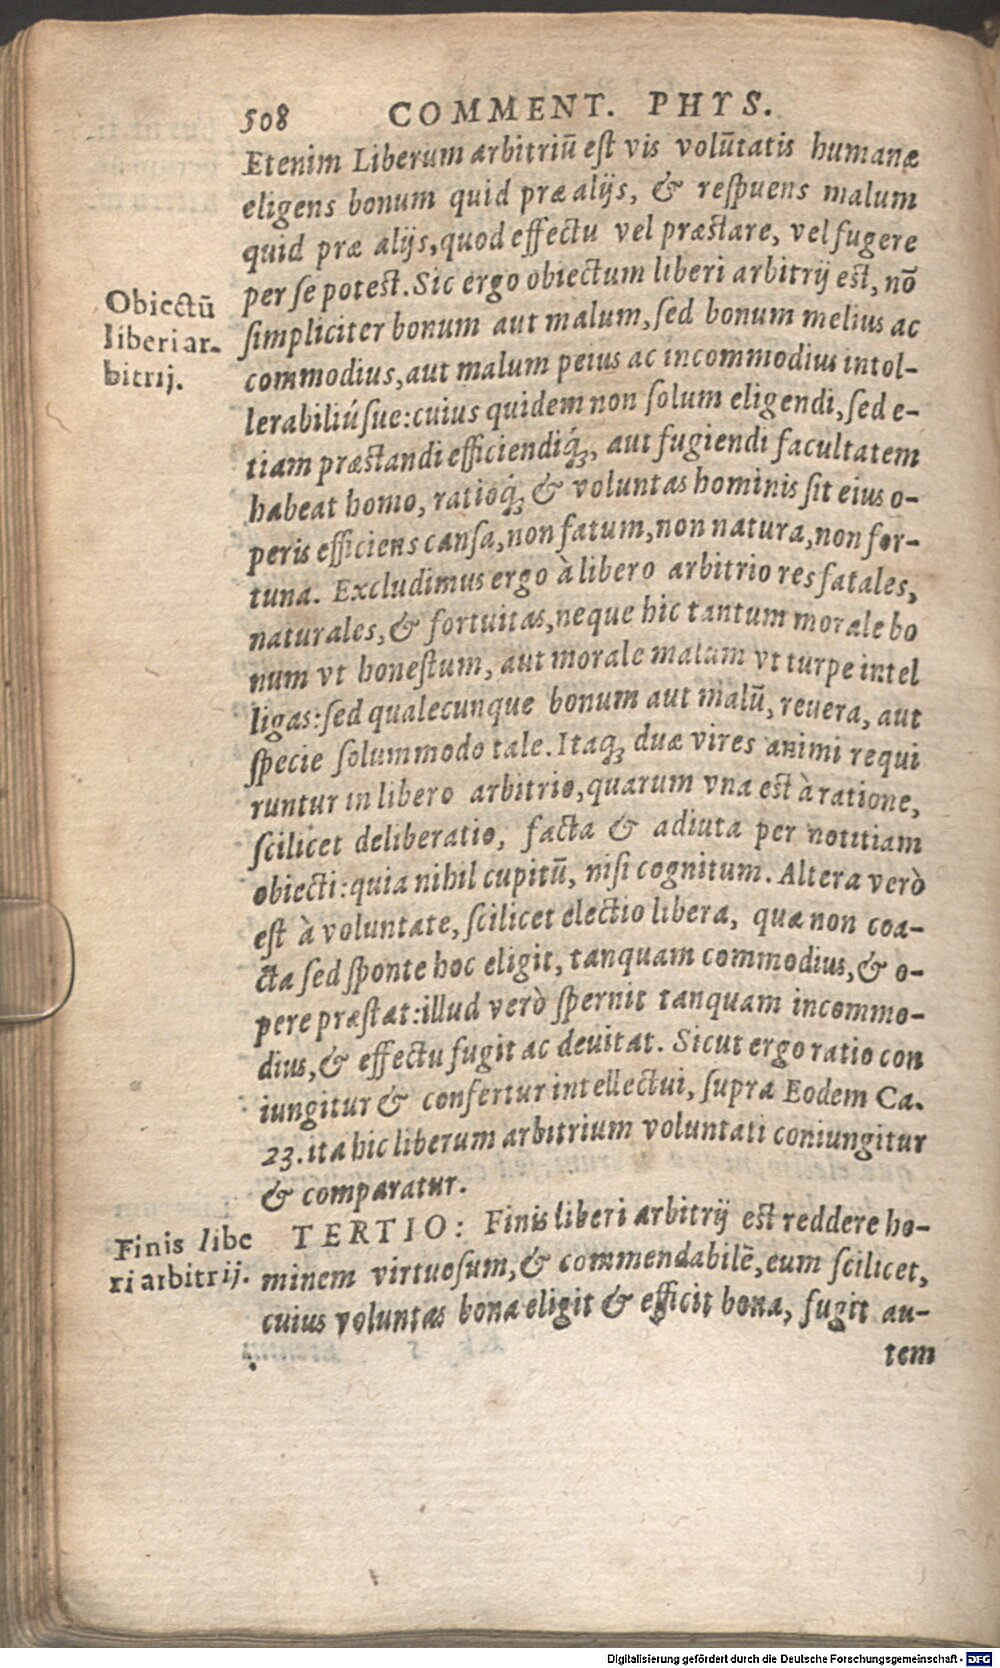 508 COMMENT. PHYS.
Etenim Liberum arbitriū est vis volūtatis humanæ
eligens bonum quid præ alijs, & respuens malum
quid præ alijs, quod effectu vel præstare, vel fugere
per se potest. Sic ergo obiectum liberi arbitrij est, nō
Obiectū
liberi ar-
bitrij.
simpliciter bonum aut malum, sed bonum melius ac
commodius, aut malum peius ac incommodius intol-
lerabiliúsue: cuius quidem non solum eligendi, sed e-
tiam præstandi efficiendiq́;, aut fugiendi facultatem
habeat homo, ratioq́; & voluntas hominis sit eius o-
peris efficiens causa, non fatum, non natura, non for-
tuna. Excludimus ergo à libero arbitrio res fatales,
naturales, & fortuitas, neque hic tantum morale bo
num vt honestum, aut morale malum vt turpe intel
ligas: sed qualecunque bonum aut malū, reuera, aut
specie solummodo tale. Itaq; duæ vires animi requi
runtur in libero arbitrio, quarum vna est à ratione,
scilicet deliberatio, facta & adiuta per notitiam
obiecti: quia nihil cupitū, nisi cognitum. Altera verò
est à voluntate, scilicet electio libera, quæ non coa-
cta sed sponte hoc eligit, tanquam commodius, & o-
pere præstat: illud verò spernit tanquam incommo-
dius, & effectu fugit ac deuitat. Sicut ergo ratio con
iungitur & confertur intellectui, supra Eodem Ca.
23. ita hic liberum arbitrium voluntati coniungitur
& comparatur.
Finis libe
ri arbitrij.
TERTIO: Finis liberi arbitrij est reddere ho-
minem virtuosum, & commendabilē, eum scilicet,
cuius voluntas bona eligit & efficit bona, fugit au-
tem
Digitalisierung gefördert durch die Deutsche Forschungsgemeinschaft - DFG